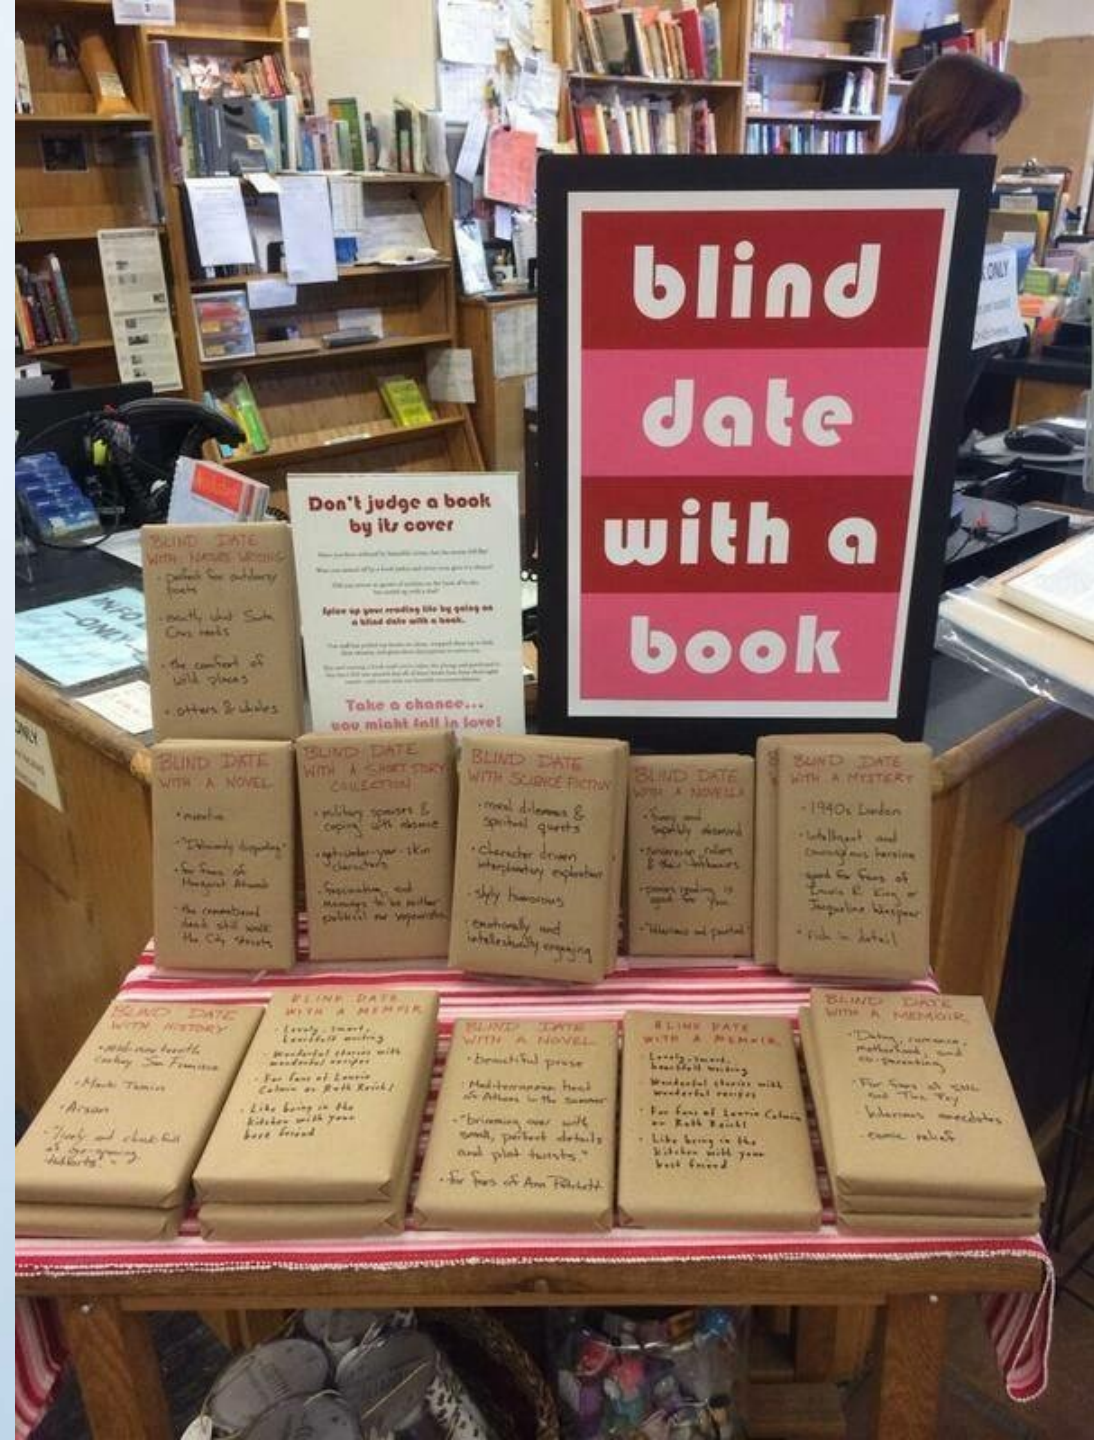 blind
date
with a
book
Don't judge a book
by its cover
Spice up your reading life by going on
a blind date with a book.
Take a chance...
you might fall in love!
INFO
ONLY
ONLY
ONLY
BLIND DATE
WITH NATURE WRITING
• perfect for outdoorsy
poets
• exactly what Santa
Cruz needs
• the comfort of
wild places
• otters & whales
BLIND DATE
WITH A NOVEL
• inventive
• for fans of
Margaret Atwood
• the remembered
dead still walk
the City streets
BLIND DATE
WITH A SHORT STORY
COLLECTION
• military spouses &
coping with absence
• get-under-your-skin
characters
• fascinating, and
manages to be neither
political nor
BLIND DATE
WITH SCIENCE FICTION
• moral dilemmas &
spiritual quests
• character driven
interplanetary exploration
• slyly humorous
• emotionally and
intellectually engaging
BLIND DATE
WITH A NOVELLA
• funny and
superbly observed
• sovereign rulers
& their
• proves reading is
good for you
• "hilarious and
BLIND DATE
WITH A MYSTERY
• 1940s London
• intelligent and
courageous heroine
• good for fans of
Laurie R. King or
Jacqueline Winspear
• rich in detail
BLIND DATE
WITH HISTORY
• mid-nineteenth
century San Francisco
• Mark Twain
• Arson
• "lively and chock-full
of
BLIND DATE
WITH A MEMOIR
• Lovely, smart,
heartfelt writing
• Wonderful stories with
wonderful recipes
• For fans of Laurie
Colwin or Ruth Reichl
• Like being in the
kitchen with your
best friend
BLIND DATE
WITH A NOVEL
• beautiful prose
• Mediterranean heat
of Athens in the summer
• "brimming over with
small, perfect details
and plot twists."
• for fans of Ann Patchett
BLIND DATE
WITH A MEMOIR
• Lovely, smart,
heartfelt writing
• Wonderful stories with
wonderful recipes
• For fans of Laurie Colwin
or Ruth Reichl
• Like being in the
kitchen with your
best friend
BLIND DATE
WITH A MEMOIR
• Dating, romance,
motherhood, and
co-parenting
• For fans of SNL
and Tina Fey
• hilarious anecdotes
• comic relief